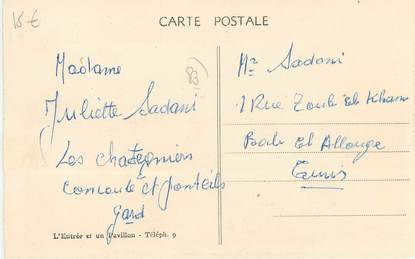 15 €
CARTE POSTALE
Madame
Juliette Sadani
Les chategniers
Concoule et ponteils
Gard
83
L'Entrée et un Pavillon - Téléph. 9
Mr Sadani
1 Rue
Bab El Allouge
Tunis